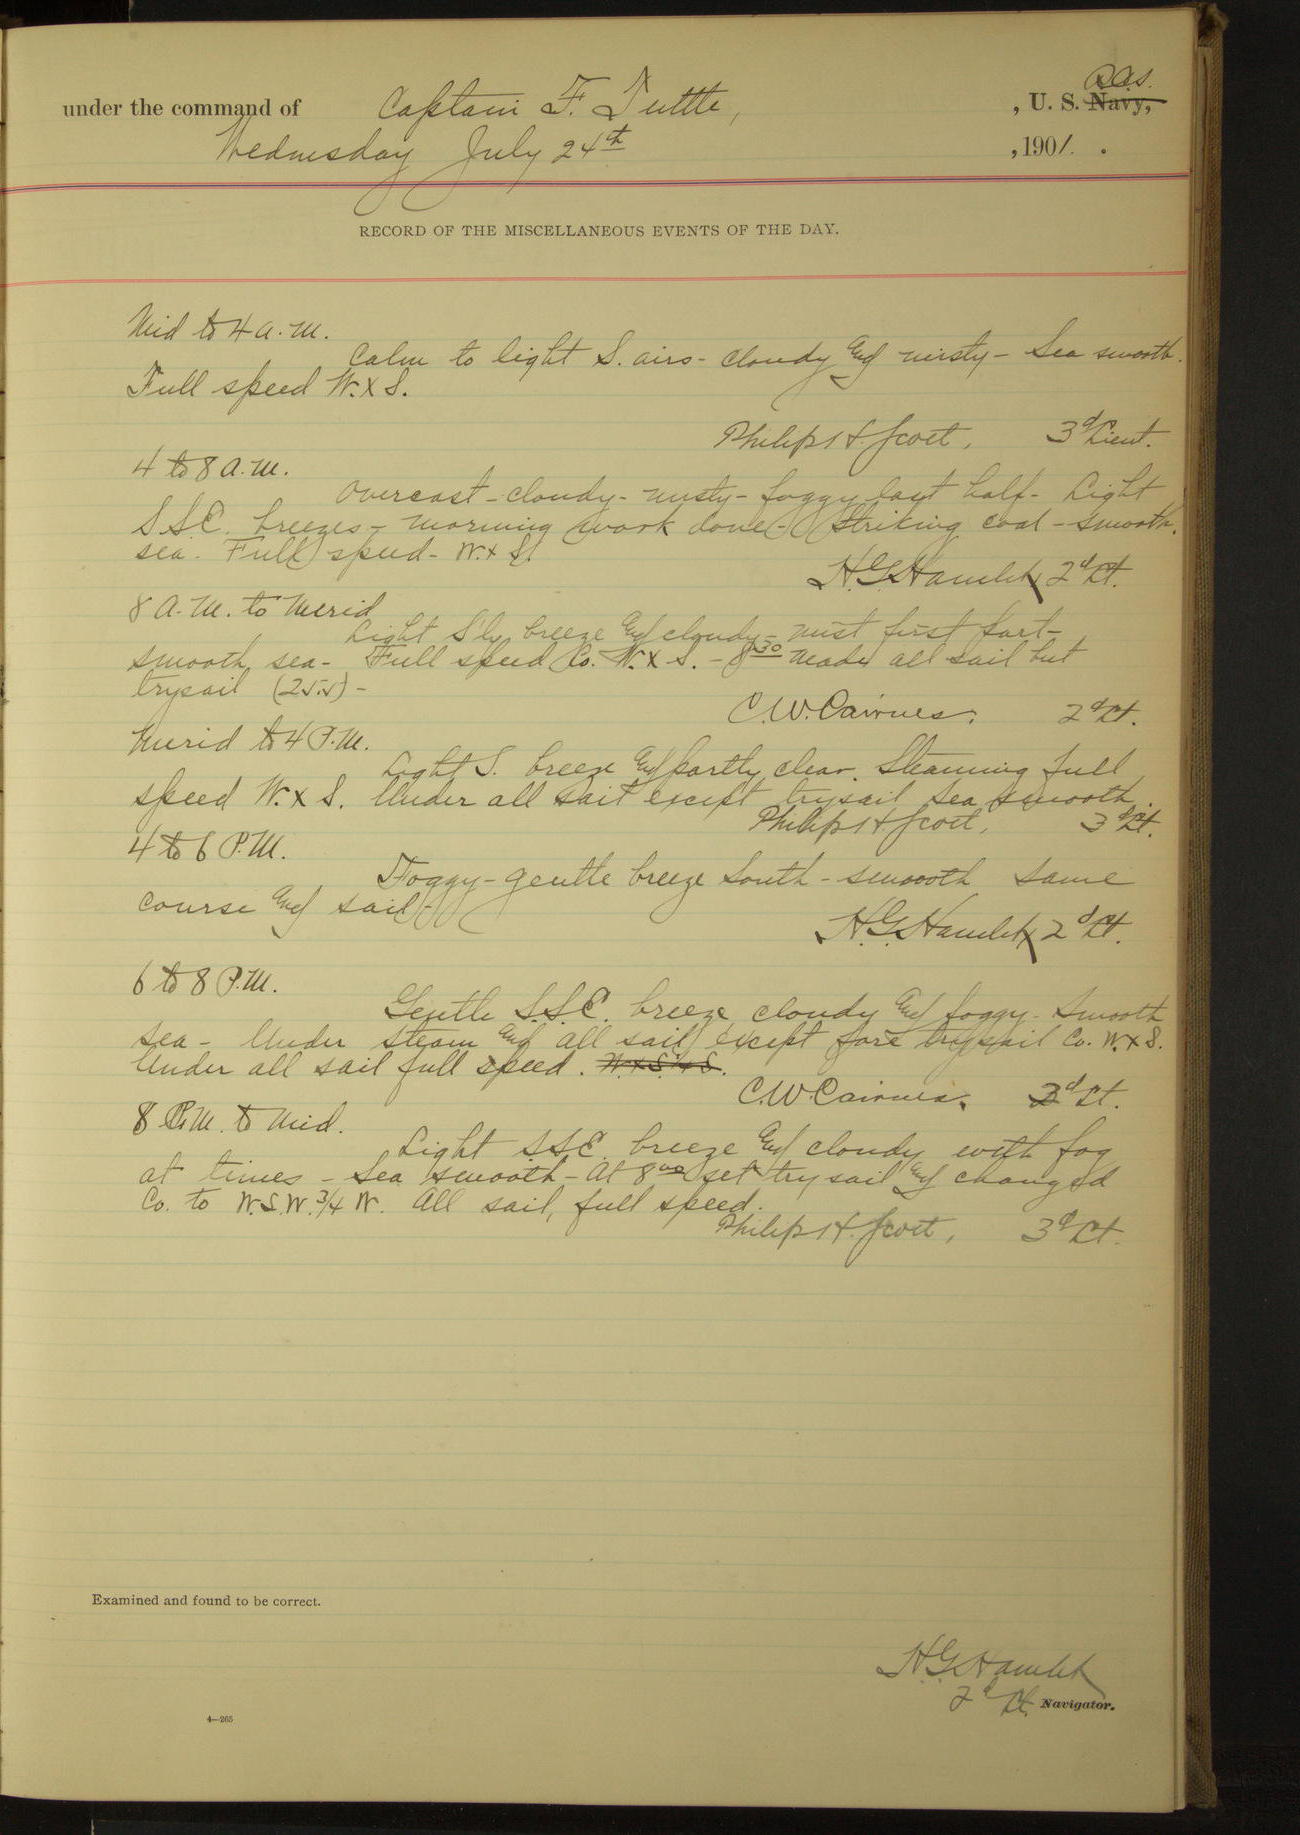 R.C.S.
under the command of Captain F. Tuttle, , U. S. Navy,
Wednesday July 24th , 1901 .
RECORD OF THE MISCELLANEOUS EVENTS OF THE DAY.
Mid to 4 a.m.
Calm to light S. airs - cloudy and misty - Sea smooth.
Full speed W. x S.
Philip H. Scott, 3d Lieut.
4 to 8 a.m.
Overcast - cloudy - misty - foggy last half - Light
S.S.E. breezes - morning work done - Striking coal - smooth
sea. Full speed - W. x S.
H.G. Hamlet 2d Lt.
8 A.M. to Merid
Light S'ly breeze and cloudy - mist first part -
smooth sea - Full speed Co. W. x S. - 8 30 made all sail but
trysail (255) -
C.W. Cairnes. 2d Lt.
Merid to 4 P.M.
Light S. breeze and partly clear. Steaming full
speed W. x S. Under all sail except trysail sea smooth.
Philip H. Scott, 3d Lt.
4 to 6 P.M.
Foggy - gentle breeze South - smooth same
course and sail -
H.G. Hamlet 2d Lt.
6 to 8 P.M.
Gentle S.S.E. breeze cloudy and foggy - Smooth
sea - Under steam and all sail except fore trysail Co. W. x S.
Under all sail full speed. W. x S. 1/4 S.
C.W. Cairnes. 2d Lt.
8 P.M. to Mid.
Light SSE. breeze and cloudy with fog
at times - Sea smooth - At 8 00 set trysail and changed
Co. to W.S.W. 3/4 W. All sail, full speed.
Philip H. Scott, 3d Lt.
Examined and found to be correct.
H.G. Hamlet
2d Lt. Navigator.
4—265